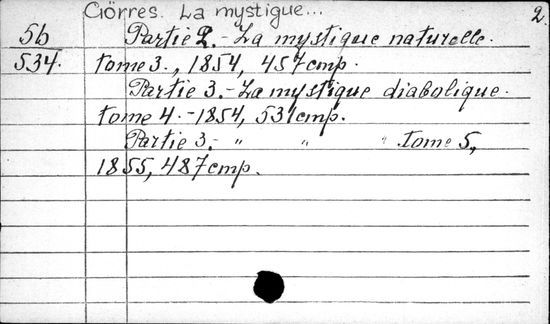 Görres. La mystique... 2.
5b Partie 2.- La mystique naturelle.
534. tome 3., 1854, 457 cmp.
Partie 3.- La mystique diabolique.
tome 4.- 1854, 531 cmp.
Partie 3.- " " " tome 5.,
1855, 487 cmp.